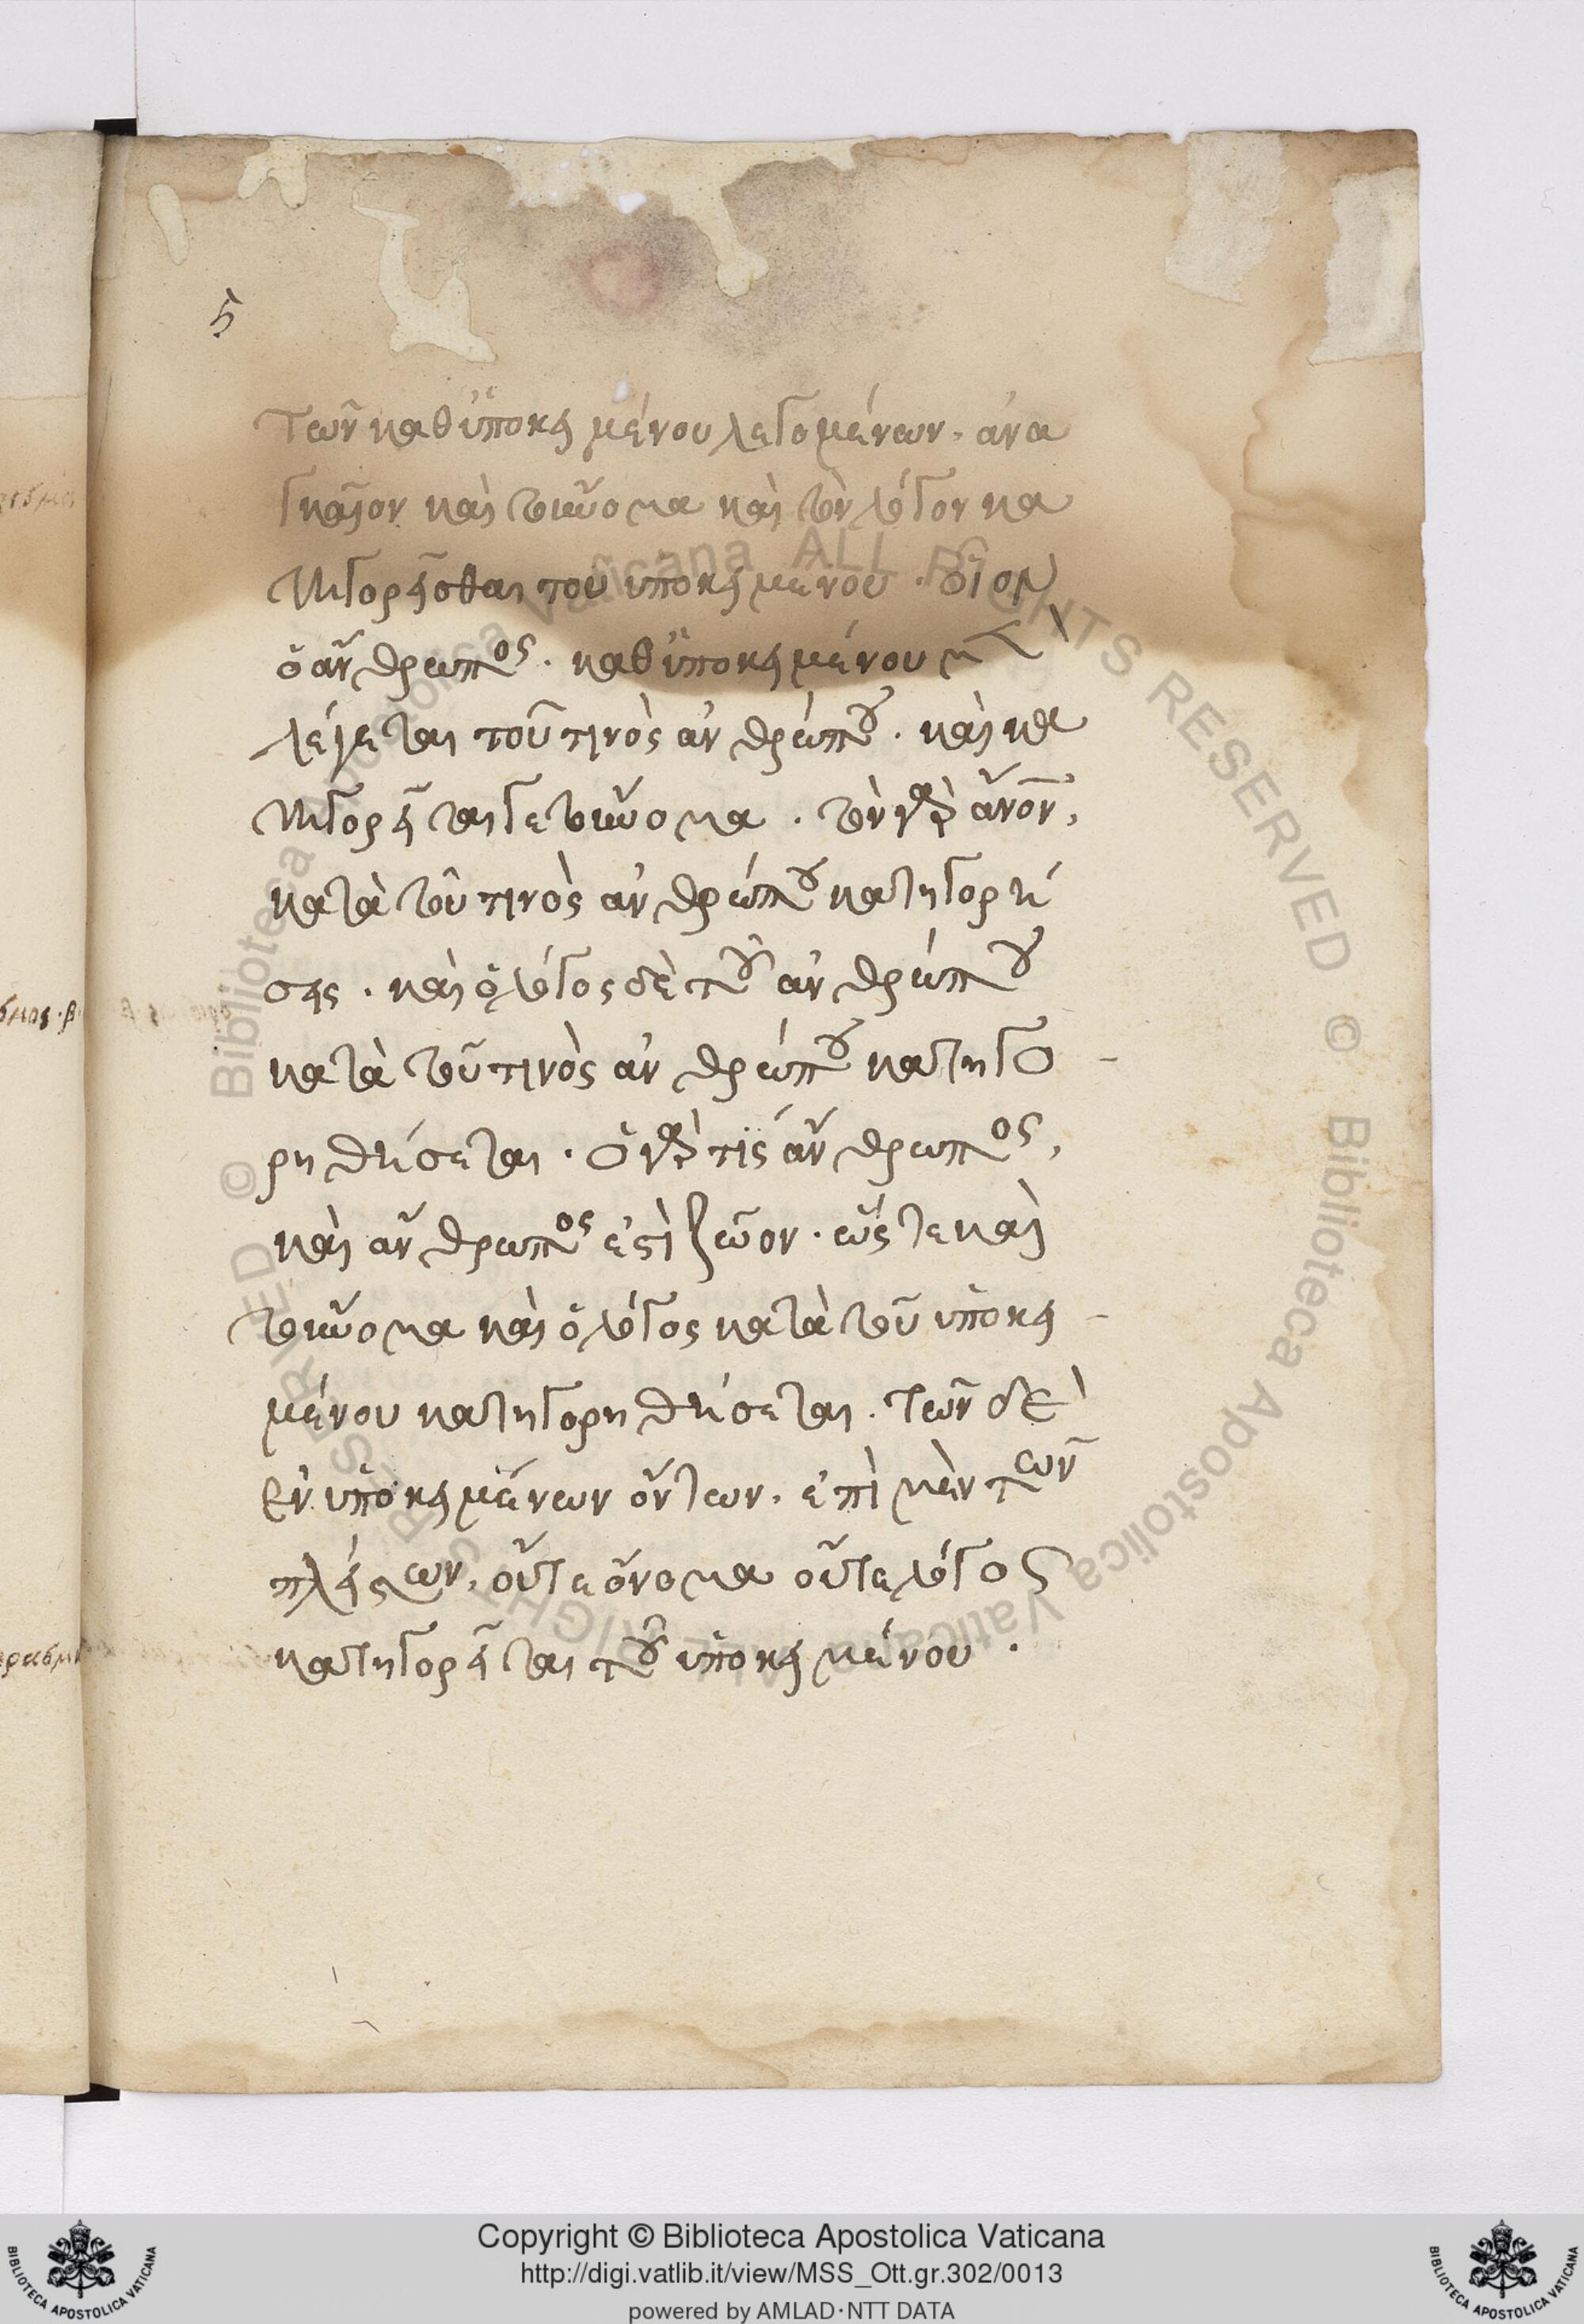 5
τῶν καθ ὑποκειμένου λεγομένων. ἀνα
γκαῖον καὶ τοὔνομα καὶ τὸν λόγον κα
τηγορεῖσθαι τοῦ ὑποκειμένου. οἷον
ὁ ἄνθρωπος. καθ ὑποκειμένου μὲν
λέγεται τοῦ τινὸς ἀνθρώπου. καὶ κα
τηγορεῖται γε τοὔνομα. τὸν γὰρ ἄνον,
κατὰ τοῦ τινὸς ἀνθρώπου κατηγορή
σεις. καὶ ὁ λόγος δὲ τοῦ ἀνθρώπου
κατὰ τοῦ τινὸς ἀνθρώπου κατηγο-
ρηθήσεται. ὁ γὰρ τίς ἄνθρωπος,
καὶ ἄνθρωπος ἐστὶ ζῶον. ὥστε καὶ
τοὔνομα καὶ ὁ λόγος κατὰ τοῦ ὑποκει-
μένου κατηγορηθήσεται. τῶν δὲ
ἐν ὑποκειμένων ὄντων. ἐπὶ μὲν τῶν
πλείστων, οὔτε ὄνομα οὔτε λόγος
κατηγορεῖται τοῦ ὑποκειμένου.
© Biblioteca Apostolica Vaticana ALL RIGHTS RESERVED © Biblioteca Apostolica Vaticana ALL RIGHTS RESERVED
Copyright © Biblioteca Apostolica Vaticana
http://digi.vatlib.it/view/MSS_Ott.gr.302/0013
powered by AMLAD·NTT DATA
BIBLIOTECA APOSTOLICA VATICANA
BIBLIOTECA APOSTOLICA VATICANA